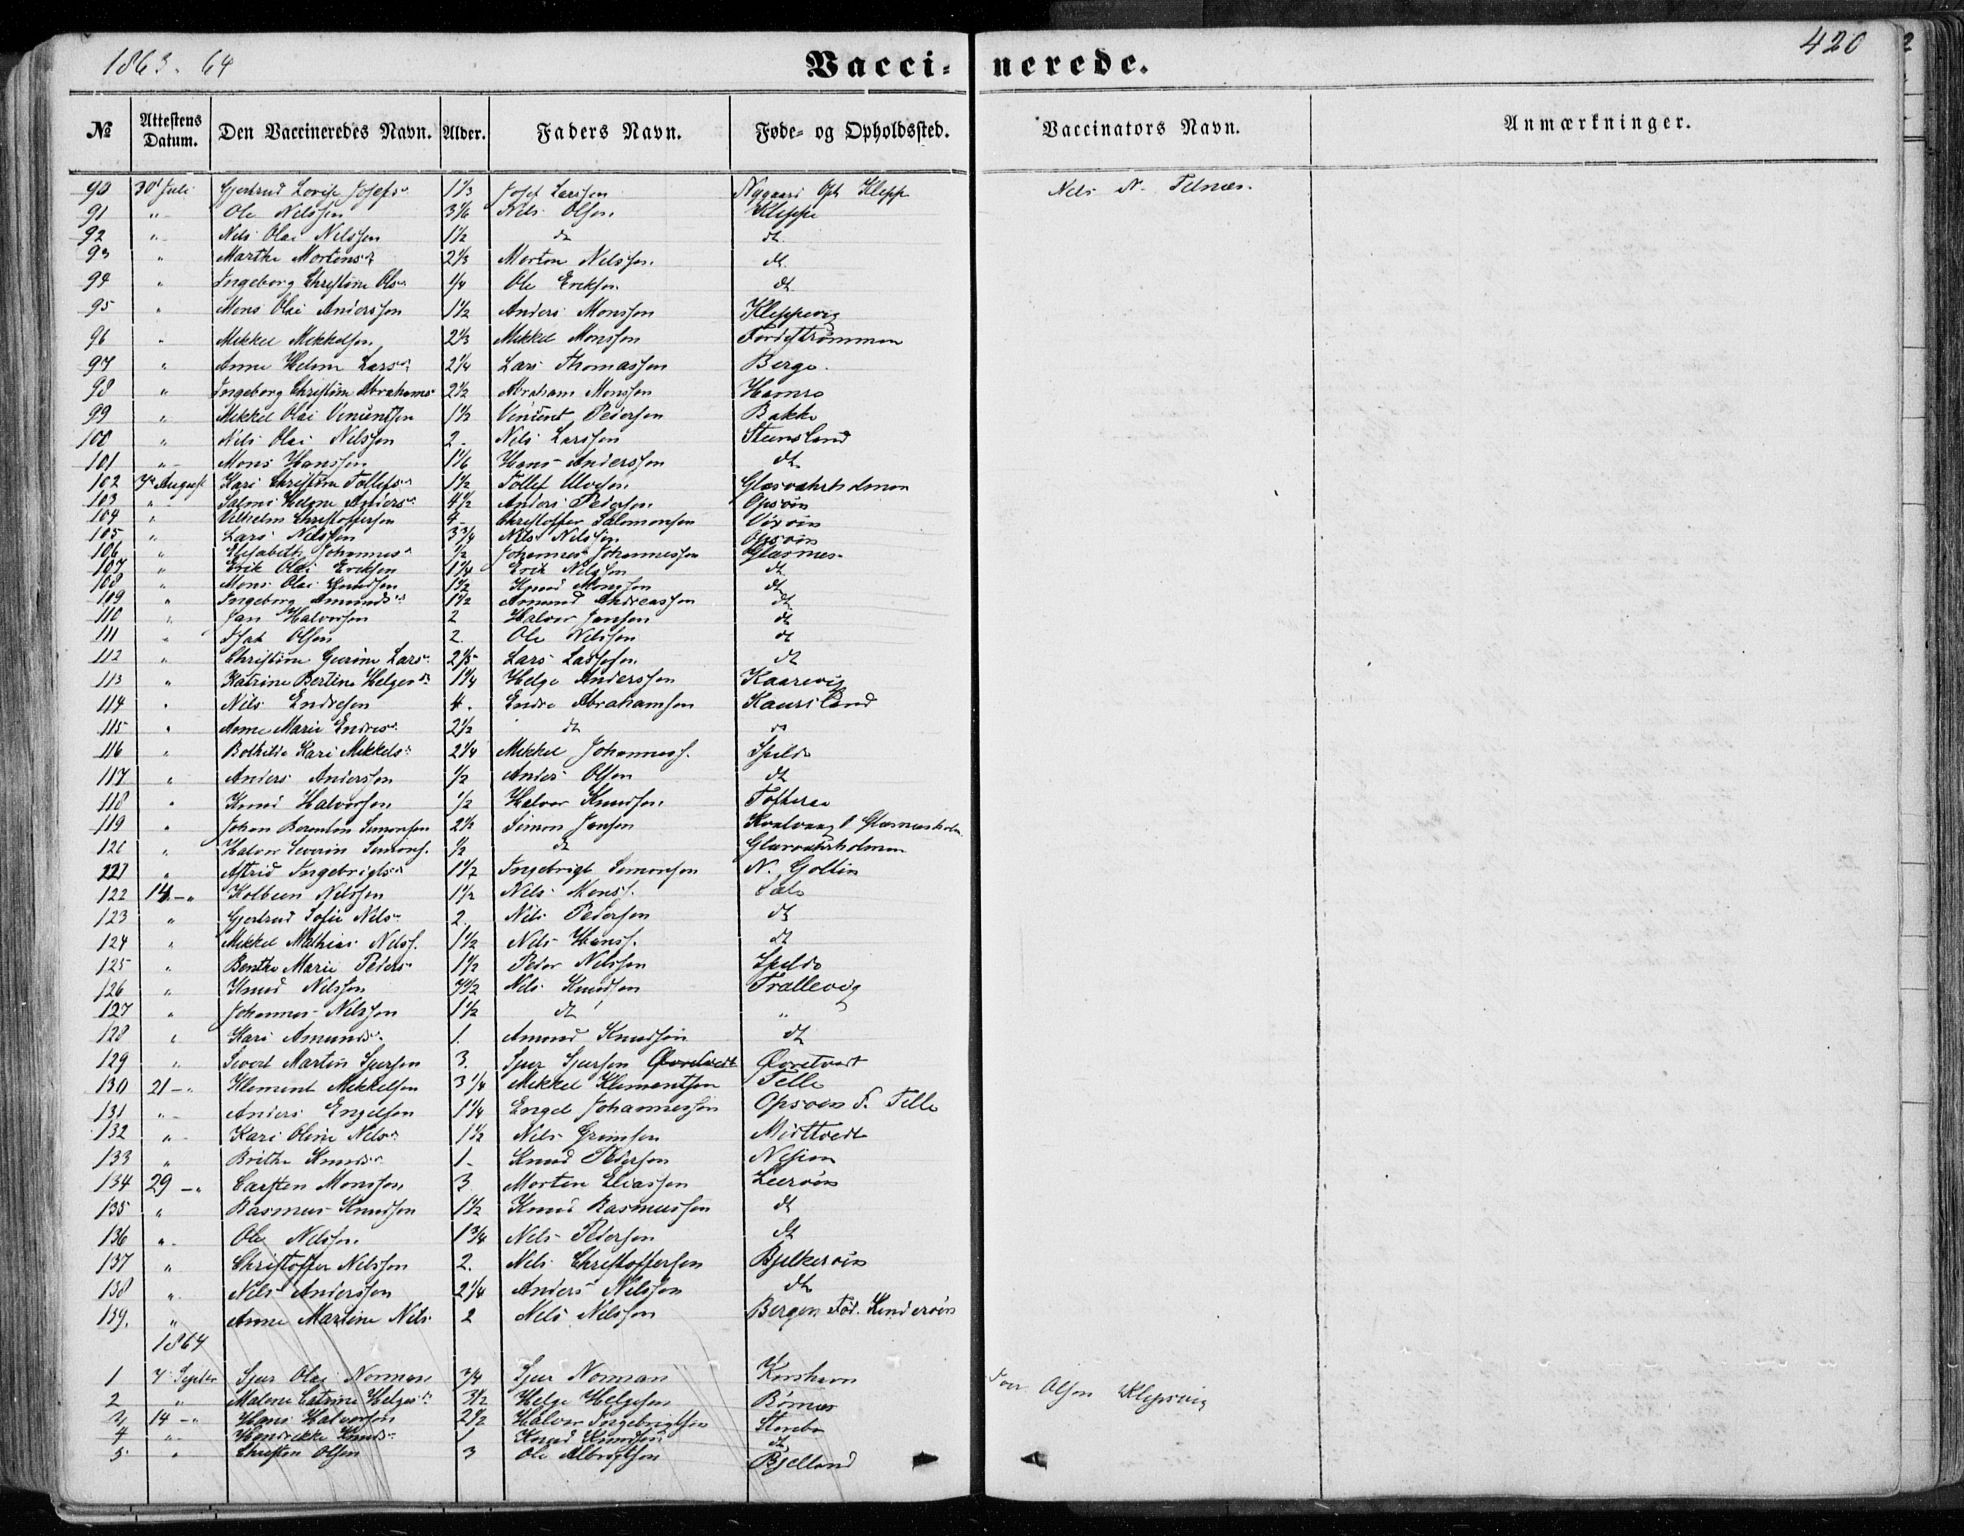 1863. 64
Vacci- nerede.
420
№ Attestens Datum. Den Vaccineredes Navn. Alder. Faders Navn. Føde- og Opholdssted. Vaccinators Navn. Anmærkninger.
90 30 Juli Gjertrud Lovise Josefs- 1 1/3 Josef Larssen Nygaard Klepp Nels N. Telnæs.
91 " Ole Nelssen 3 1/6 Nils Olsen. Kleppe
92 " Nels Olai Nilssen 1 1/2 dt dt
93 " Marthe Mortens- 2 1/3 Morten Nelssen. dt.
94 " Ingeborg Christine Ols- 1/4 Ole Eriksen. dt
95 " Mons Olai Anderssen 1 1/2 Anders Monssen Kleppevig
96 " Mikkel Mikkelsen 2 1/3 Mikkel Monssen Fordestrømmen
97 " Anne Helene Lars- 2 1/4 Lars Thomassen Berge.
98 " Ingeborg Christine Abrahams- 2 1/2 Abraham Monssen Hamre
99 " Mikkel Olai Vincentsen 1 1/3 Vincent Pedersen Bakke
100 " Nils Olai Nilssen 2. Nels Larssen Steensland
101 " Mons Hanssen 1 1/6 Hans Anderssen dt
102 7 August Kari Christine Tollefs- 1 1/2 Tollef Ulvesen. Glesvahrholmen
103 " Salmi Helene Anders- 4 1/2 Anders Pedersen Opsøin
104 " Vilhelm Christoffersen 4 Christoffer Salomonsen
105 " Lars Nelssen 3 3/4 Nils Nilssen Opsøin
106 " Elisabeth Johannes- 1/2 Johannes Johannessen Glesnæs
107 " Erik Olai Eriksen 1 1/4 Erik Nilssen dt
108 " Mons Olai Knudsen 1 1/2 Knud Monssen dt
109 " Ingeborg Amunds- 1 1/2 Amund Andreassen dt
110 " Jan Halversen 2 Halver Jansen dt
111 " Isak Olsen 2. Ole Nilssen dt
112 " Christine Gurine Lars- 2 1/5 Lars Lassesen dt
113 " Katrine Bertine Helges- 1 1/4 Helge Anderssen Kaarevig
114 " Nils Endresen 4. Endre Abrahamsen Kausland
115 " Anne Marie Endres- 2 1/2 dt
116 " Bothilde Kari Mikkels- 2 1/4 Mikkel Johannes. Spilde
117 " Anders Anderssen 1/2 Anders Olsen dt
118 " Knud Halversen 1/2 Halver Knudsen Tofteraa
119 " Johan Berenton Simonsen 2 1/2 Simon Jansen Kvalvaag Glesnæsholm
120 " Halver Severin Simons. 1/2 dt Glesvahrholmen
121 " Astrid Ingebrigts- 1 1/2 Ingebrigt Simonsen N. Goltin
122 14 - " Kolbeen Nilssen 1 1/2 Nils Mons.
123 " Gjertrud Sofie Nels- 2. Nils Pedersen dt
124 " Mikkel Mathias Nels. 1 1/2 Nels Hans. dt
125 " Benthe Marie Peders- 1 1/2 Peder Nilssen Spilde
126 " Knud Nilssen Nils Knudsen Trællevig
127 " Johannes Nilssen 1 1/2 dt "
128 " Kari Amunds- 1. Amund Knudsen dt
129 " Sivert Martin Sjursen 3. Sjur Sjursen Øvretvedt Øvretvedt
130 21 - " Klement Mikkelsen 3 1/4 Mikkel Klementsen Telle
131 " Anders Engelsen 1 1/4 Engel Johannessen Opsøen F. Telle
132 " Kari Oline Nels- 1 1/2 Nils Grimsen Midttvedt
133 " Brithe Knuds- 1. Knud Pedersen Nesien
134 29 - " Carsten Monssen 3. Morten Eliassen Leerøin
135 " Rasmus Knudsen 1 1/2 Knud Rasmussen dt
136 " Ole Nelssen. 1 3/4 Nels Pedersen dt
137 " Christoffer Nelssen 2. Nels Christoffersen Bjelkerøin
138 " Nels Anderssen 2 1/4 Anders Nilssen dt
139. " Anne Martine Nels. 2 Nels Nelssen Bergen Fød. Hinderøin
1864
1 7 Septbr Sjur Olai Norman 3/4 Sjur Norman Korshavn Ivar Olsen Klepsvig
2 " Malene Catrine Helges- 3 1/2 Helge Helgesen Børnes
3 14 - " Hans Halversen 2 1/2 Halver Ingebrigtsen Steenbo
4 " Hendrikke Knuds- 1 Knud Knudsen dt
5 " Christen Olsen 3 Ole Albregtsen Bjelland